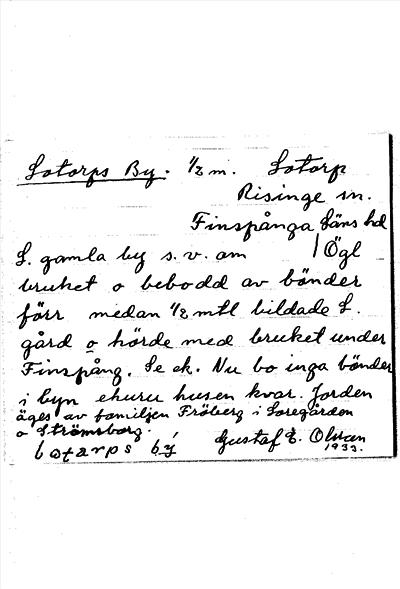 Lotorps By. 1/2 m. Lotorp
Risinge sn.
Finspånga läns hd
L. gamla by s. v. om / Ögl
bruket o bebodd av bönder
förr medan 1/2 mtl bildade L.
gård o hörde med bruket under
Finspång. Se ek. Nu bo inga bönder
i byn ehuru husen kvar. Jorden
äges av familjen Fröberg i Loregården
o Strömsborg.
Gustaf E. Olsson
1933.
lotarps bý